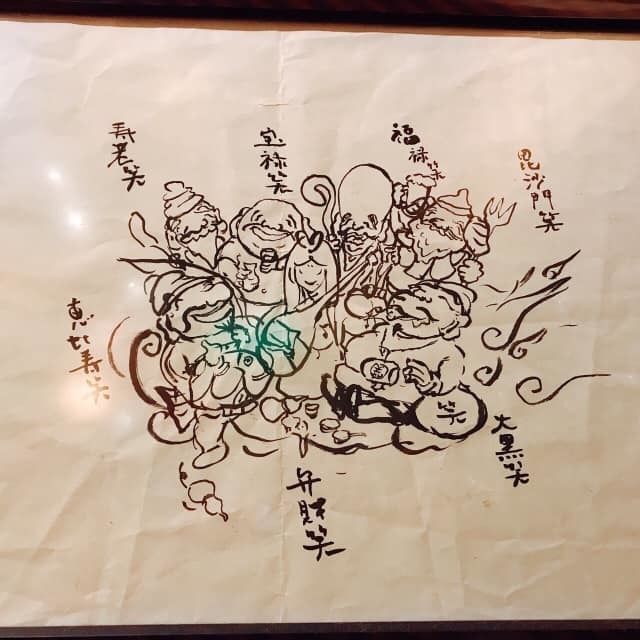 毘沙門笑
福禄笑
宝禄笑
寿老笑
恵比寿笑
弁財笑
大黒笑
笑